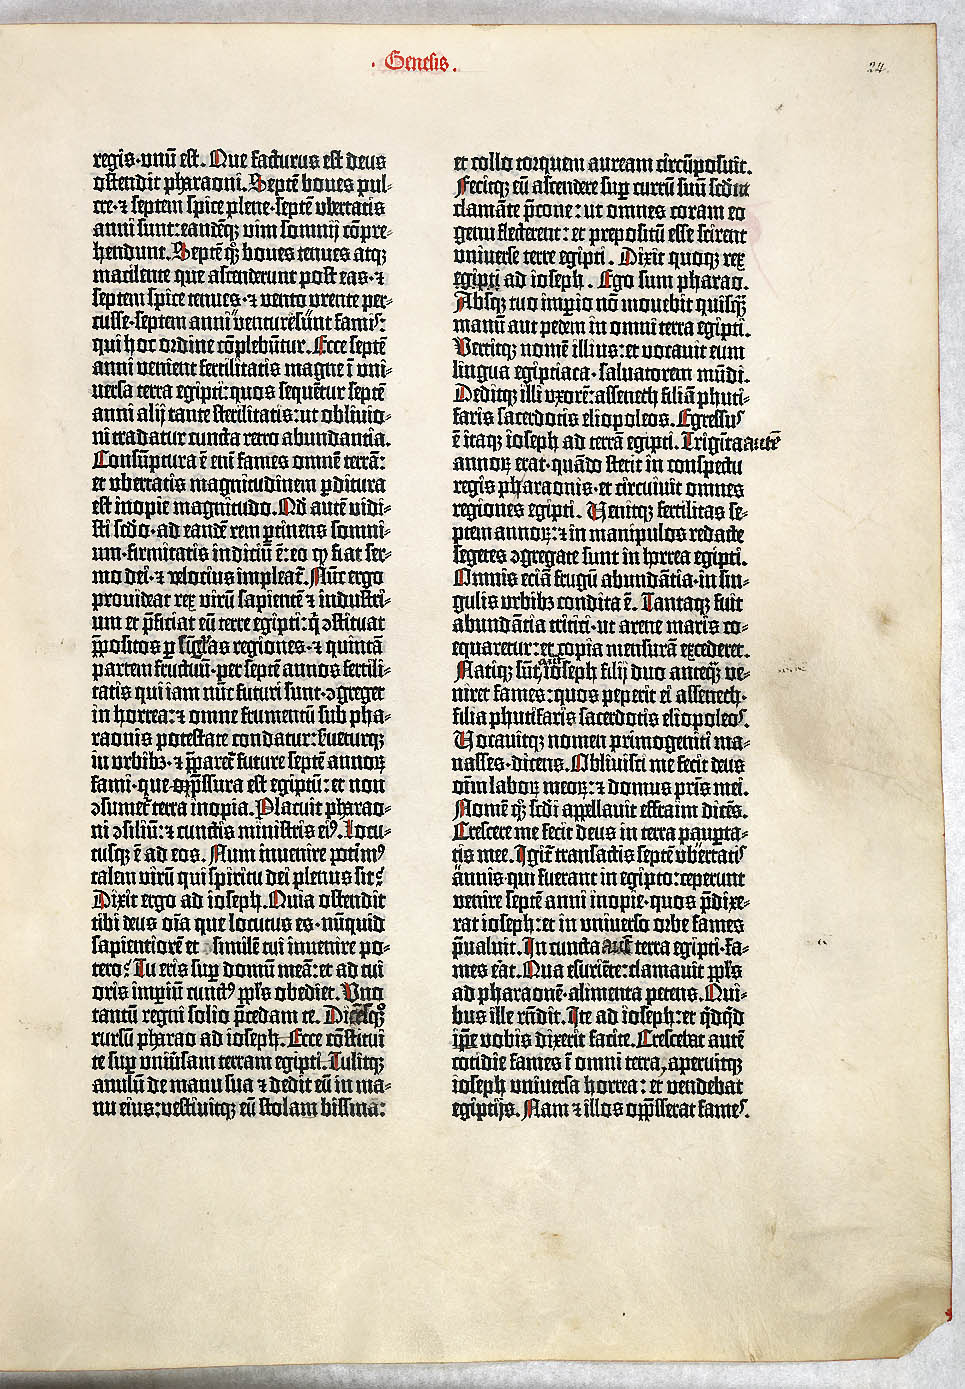 · Genesis ·
24.
regis·unū est. Que facturus est deus
ostendit pharaoni. Septē boues pul-
cre·⁊ septem spice plene·septē ubertatis
anni sunt: eandēqꝫ vim somnij cōpre-
hendunt. Septē qꝫ boues tenues atqꝫ
macilente que ascenderunt post eas·⁊
septem spice tenues·⁊ vento vrente per-
cusse·septem anni venture sūnt famis:
qui hoc ordine cōplebūtur. Ecce septē
anni venient fertilitatis magne ī vni-
uersa terra egipti: quos sequētur septē
anni alij tante sterilitatis: ut obliuio-
ni tradatur cuncta retro abundantia.
Consūptura ē eni fames omnē terrā:
et vbertatis magnitudinem ꝑditura
est inopie magnitudo. Qd autē vidi-
sti scdo·ad eandē rem ꝑtinens somni-
um·firmitatis indiciū ē: eo ꝙ fiat ser-
mo dei·⁊ velocius impleat̄. Nūc ergo
prouideat rex virū sapientē ⁊ industri-
um et p̄ficiat eū terre egipti: q̄ ↄstituat
p̄positos ꝑ singlas regiones·⁊ quintā
partem fructuum·per septē annos fertili-
tatis qui iam nūc futuri sunt·ↄgreget
in horrea: ⁊ omne frumentū sub pha-
raonis potestate condatur: ſueturqꝫ
in vrbibꝫ·⁊ p̄paret̄ future septē annoꝝ
fami·que opp̄ssura est egiptū: et non
ↄsumet̄ terra inopia. Placuit pharao-
ni ↄsiliū: ⁊ cunctis ministris eiꝰ. Locu-
tusqꝫ ē ad eos. Num inuenire potimꝰ
talem virū qui spiritu dei plenus sit?
Dixit ergo ad ioseph. Quia ostendit
tibi deus oīa que locutus es·nūquid
sapientiorē et ↄsimilē tui inuenire po-
tero? Tu eris suꝑ domū meā: et ad tui
oris imꝑiū cunctꝰ ppls obediet. Vno
tantū regni solio p̄cedam te. Dicēsqꝫ
rursū pharao ad ioseph. Ecce cōstitui
te suꝑ vniūsam terram egipti. Tulitqꝫ
anulū de manu sua ⁊ dedit eū in ma-
nu eius: vestiuitqꝫ eū stolam bissina:
et collo torquem auream circūposuit.
Fecitqꝫ eū ascendere suꝑ currū suū scdm
clamāte p̄cone: ut omnes coram eo
genu flecterent: et prepositū esse scirent
vniuerse terre egipti. Dixit quoqꝫ rex
egipti ad ioseph. Ego sum pharao.
Absqꝫ tuo imꝑio nō mouebit quisqꝫ
manū aut pedem in omni terra egipti.
Vertitqꝫ nomē illius: et vocauit eum
lingua egiptiaca·saluatorem mūdi.
Deditqꝫ illi vxorē: asseneth filiā phuti-
faris sacerdotis eliopoleos. Egressꝰ
ē itaqꝫ ioseph ad terrā egipti. Triginta autē
annoꝝ erat·quādo stetit in conspectu
regis pharaonis·et circuiuit omnes
regiones egipti. Venitqꝫ fertilitas se-
ptem annoꝝ: ⁊ in manipulos redacte
segetes ↄgregate sunt in horrea egipti.
Omnis eciā frugū abundātia·in sin-
gulis vrbibꝫ condita ē. Tantaqꝫ fuit
abundātia tritici·ut arene maris co-
equaretur: et copia mensurā excederet.
Natiqꝫ sūt autē ioseph filij duo anteqꝫ ve-
niret fames: quos peperit ei asseneth·
filia phutifaris sacerdotis eliopoleos.
Vocauitqꝫ nomen primogeniti ma-
nasses·dicens. Obliuisci me fecit deus
oīm laboꝝ meoꝝ: ⁊ domus pr̄is mei.
Nomē qꝫ scdi appellauit effraim dicēs.
Crescere me fecit deus in terra pauꝑta-
tis mee. Igit̄ transactis septē vbertatis
annis·qui fuerant in egipto: ceperunt
venire septē anni inopie·quos p̄dixe-
rat ioseph: et in vniuerso orbe fames
p̄ualuit. In cuncta aut terra egipti·fa-
mes erat. Qua esuriēte: clamauit ppls
ad pharaonē·alimenta petens. Qui-
bus ille rn̄dit. Ite ad ioseph: et qͥdqͥd
ip̄e vobis dixerit facite. Crescebat autē
cotidie fames ī omni terra, aperuitqꝫ
ioseph vniuersa horrea: et vendebat
egiptijs. Nam ⁊ illos opp̄sserat fames.